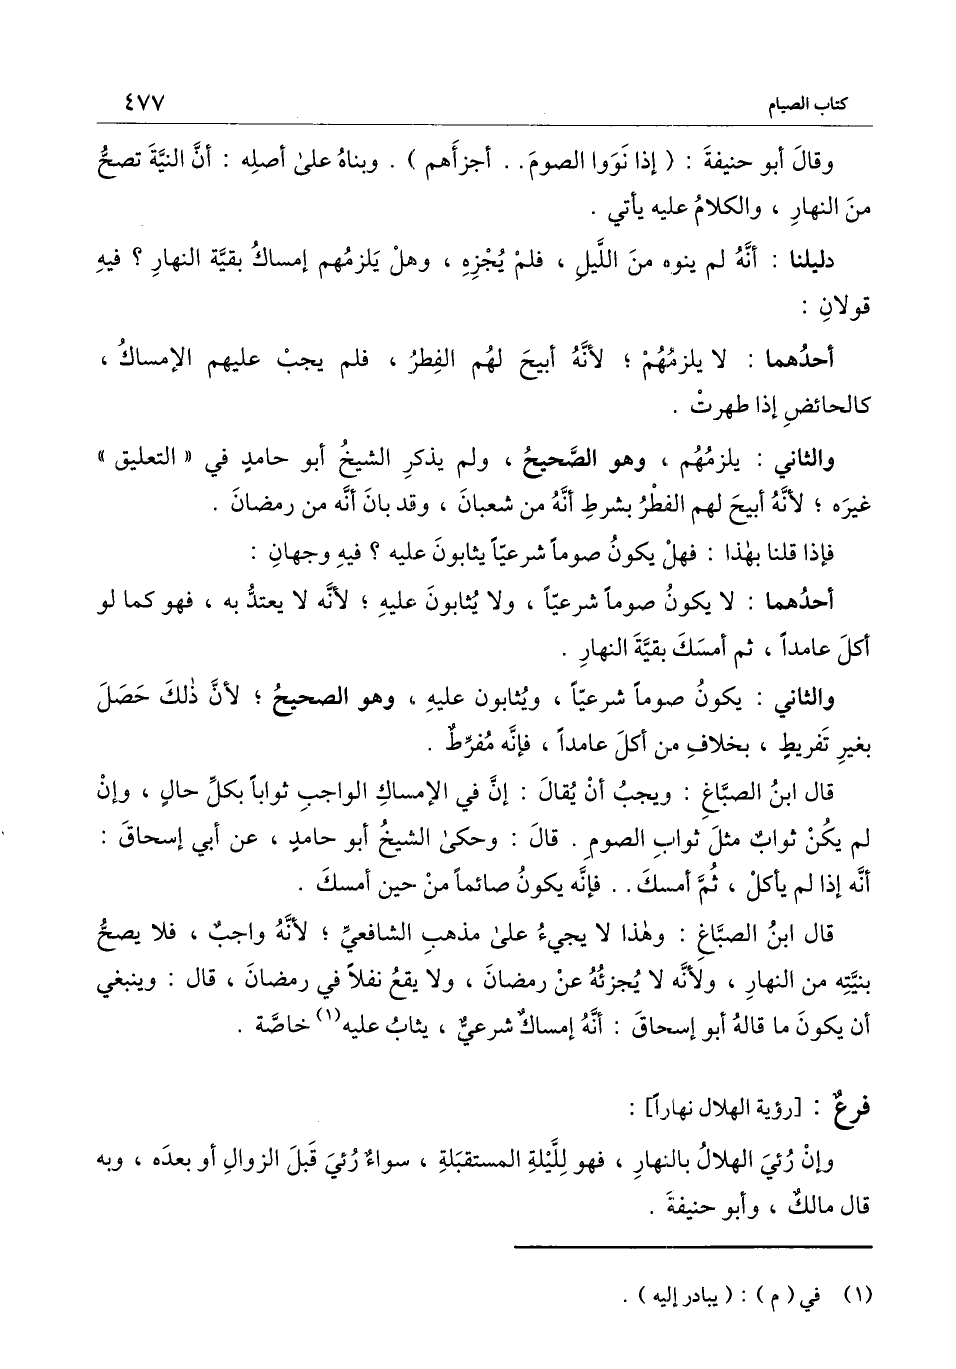 كتاب الصيام ٤٧٧
وقالَ أبو حنيفةَ : ( إذا نَوَوا الصومَ . . أجزأَهم ) . وبناهُ علىٰ أصلِه : أنَّ النيَّةَ تصحُّ
منَ النهارِ ، والكلامُ عليه يأتي .
دليلنا : أنَّهُ لم ينوه منَ اللَّيلِ ، فلمْ يُجْزِهِ ، وهلْ يَلزمُهم إمساكُ بقيَّة النهارِ ؟ فيهِ
قولانِ :
أحدُهما : لا يلزمُهُمْ ؛ لأنَّهُ أبيحَ لهُم الفِطرُ ، فلم يجبْ عليهم الإمساكُ ،
كالحائضِ إذا طهرتْ .
والثاني : يلزمُهُم ، وهو الصَّحيحُ ، ولم يذكرِ الشيخُ أبو حامدٍ في « التعليق »
غيرَه ؛ لأنَّهُ أبيحَ لهم الفطْرُ بشرطِ أنَّهُ من شعبانَ ، وقد بانَ أنَّه من رمضانَ .
فإذا قلنا بهٰذا : فهلْ يكونُ صوماً شرعيّاً يثابونَ عليه ؟ فيهِ وجهانِ :
أحدُهما : لا يكونُ صوماً شرعيّاً ، ولا يُثابونَ عليهِ ؛ لأنَّه لا يعتدُّ به ، فهو كما لو
أكلَ عامداً ، ثم أمسَكَ بقيَّةَ النهارِ .
والثاني : يكونُ صوماً شرعيّاً ، ويُثابون عليهِ ، وهو الصحيحُ ؛ لأنَّ ذٰلكَ حَصَلَ
بغيرِ تَفريطٍ ، بخلافِ من أكلَ عامداً ، فإنَّه مُفرِّطٌ .
قال ابنُ الصبَّاغِ : ويجبُ أنْ يُقالَ : إنَّ في الإمساكِ الواجبِ ثواباً بكلِّ حالٍ ، وإنْ
لم يكُنْ ثوابٌ مثلَ ثوابِ الصومِ . قالَ : وحكىٰ الشيخُ أبو حامدٍ ، عن أبي إسحاقَ :
أنَّه إذا لم يأكلْ ، ثُمَّ أمسكَ . . فإنَّه يكونُ صائماً منْ حين أمسكَ .
قال ابنُ الصبَّاغِ : وهٰذا لا يجيءُ علىٰ مذهبِ الشافعيِّ ؛ لأنَّهُ واجبٌ ، فلا يصحُّ
بنيَّتِه من النهارِ ، ولأنَّه لا يُجزئُهُ عنْ رمضانَ ، ولا يقعُ نفلاً في رمضانَ ، قال : وينبغي
أن يكونَ ما قالهُ أبو إسحاقَ : أنَّهُ إمساكٌ شرعيٌّ ، يثابُ عليه(١) خاصَّة .
فرعٌ : [رؤية الهلال نهاراً] :
وإنْ رُئيَ الهلالُ بالنهارِ ، فهو لِلَّيْلةِ المستقبَلةِ ، سواءٌ رُئيَ قَبلَ الزوالِ أو بعدَه ، وبه
قال مالكٌ ، وأبو حنيفةَ .
(١) في ( م ) : ( يبادر إليه ) .